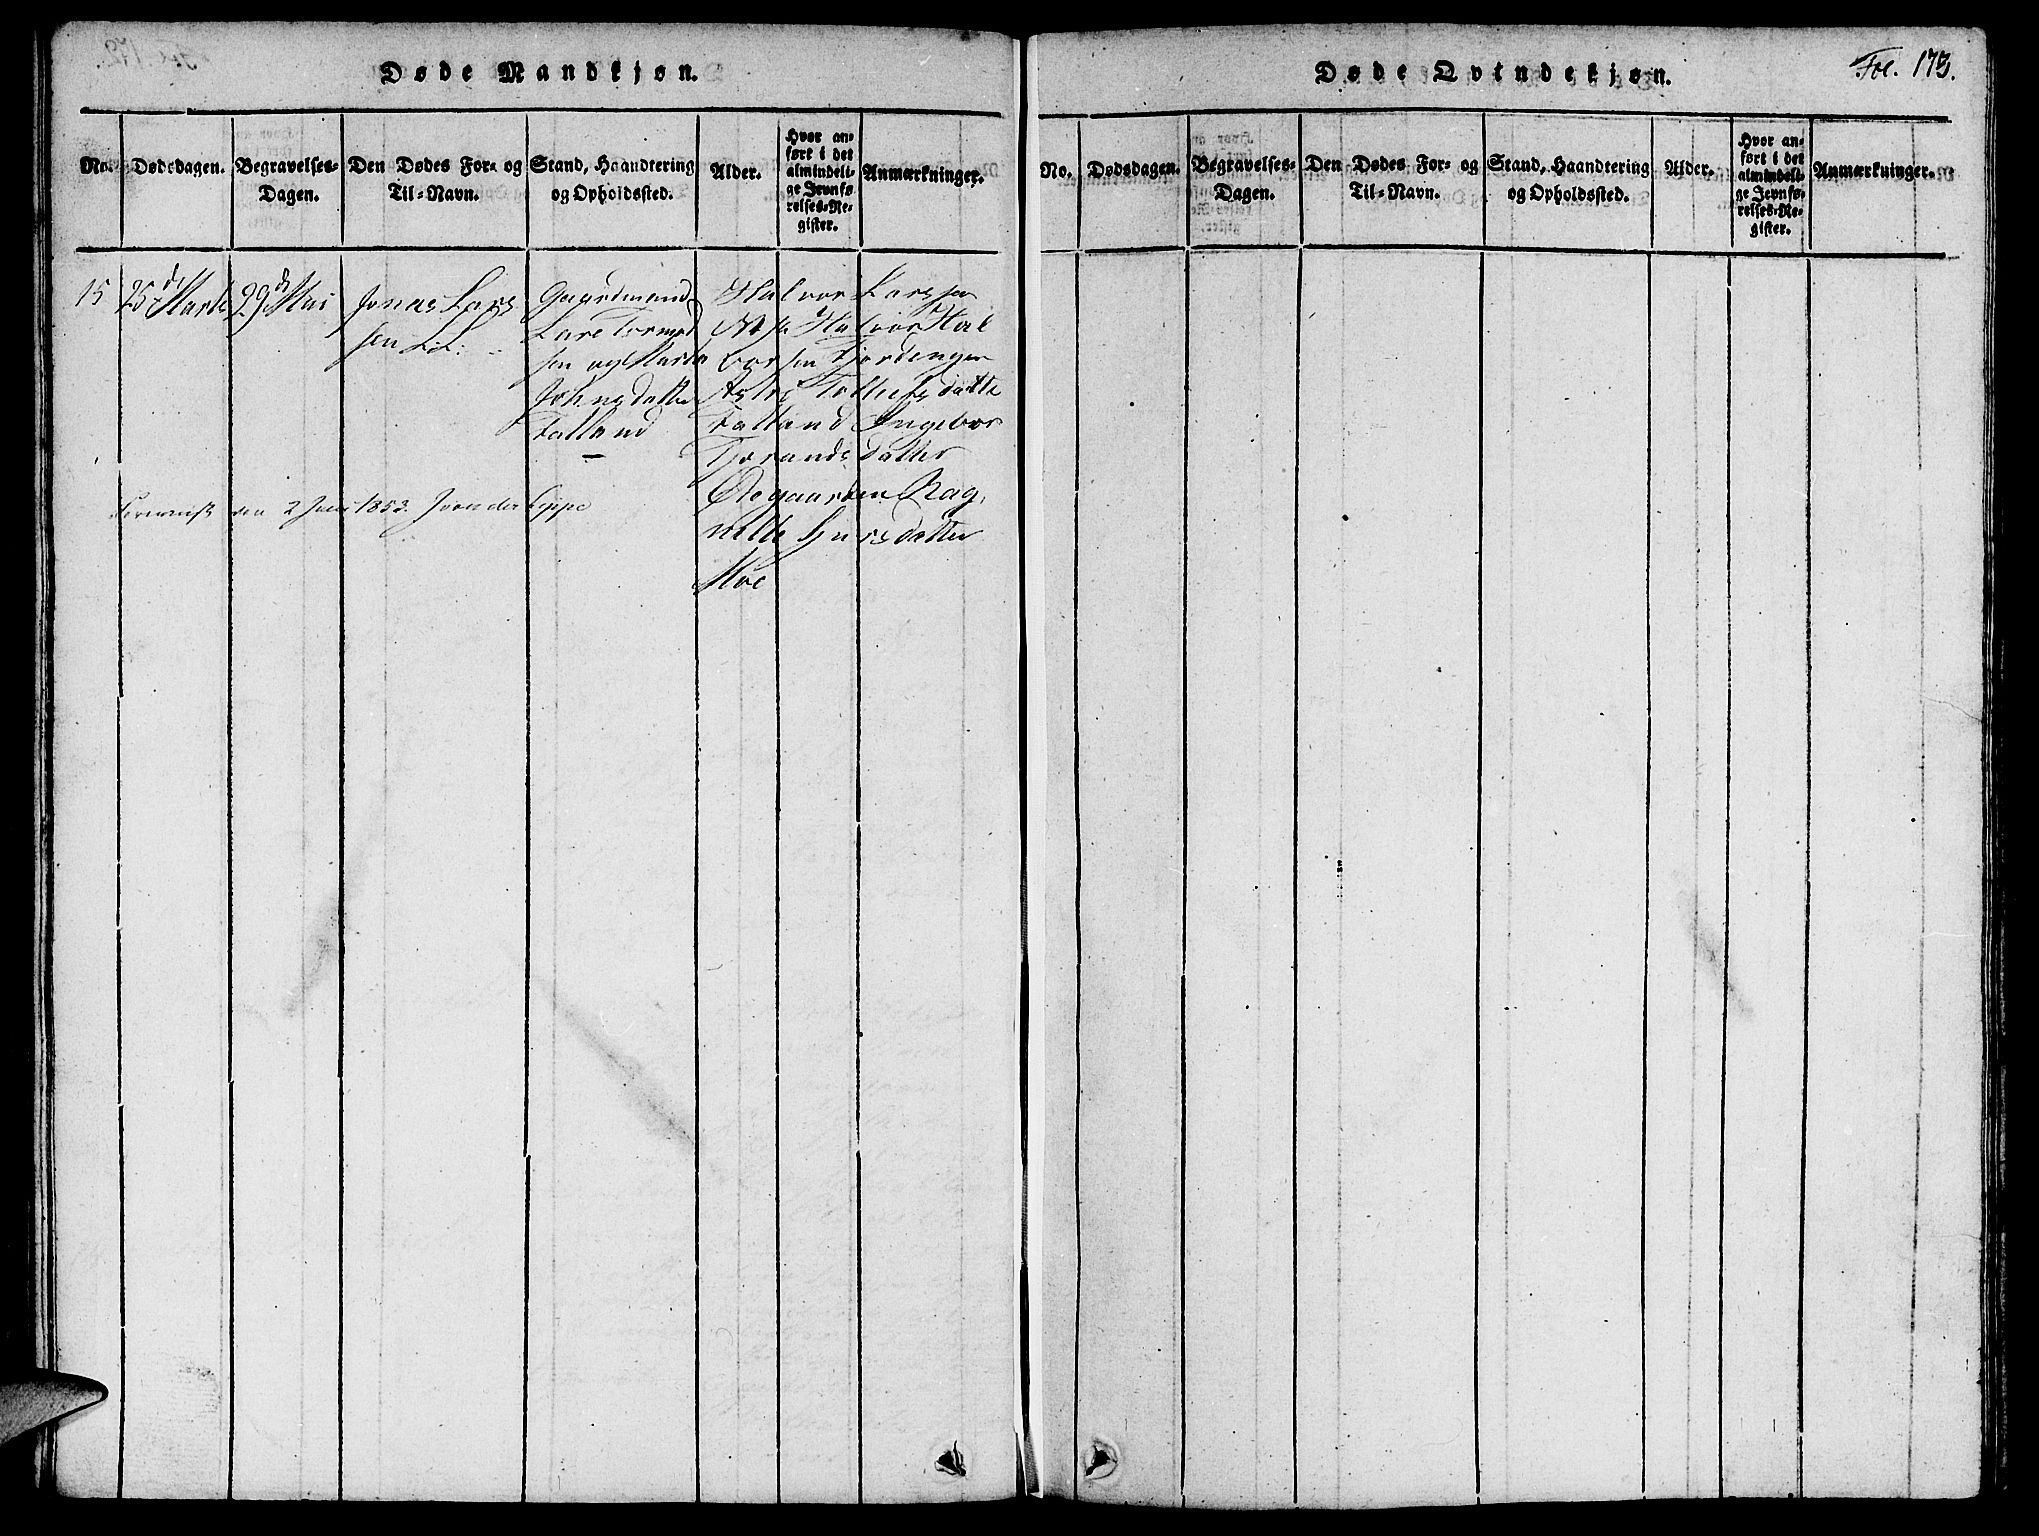 Døde Mandkjøn.
No.
Dødsdagen.
Begravelses-
Dagen.
Den Dødes For- og
Til-Navn.
Stand, Haandtering
og Opholdssted.
Alder.
Hvor an-
ført i det
almindeli-
ge Jevnfø-
relses-Re-
gister.
Anmærkninger.
15
25de Marts
29de Mai
Jonas Lars
sen
Gaardmand
Lars Tormod
sen og Marta
Johnsdatter
Falland
Halvor Larssen
Halvor Hal
vorssen Fjordengen
Tollefsdatte
Falland Ingebor
Tjerandsdatter
Øegaarden Rag,
nilde datter
Moe
den 2 Juni 1853. von der Lippe
Døde Qvindekjøn.
Fol. 173.
No.
Dødsdagen.
Begravelses-
Dagen.
Den Dødes For- og
Til-Navn.
Stand, Haandtering
og Opholdssted.
Alder.
Hvor an-
ført i det
almindeli-
ge Jevnfø-
relses-Re-
gister.
Anmærkninger.